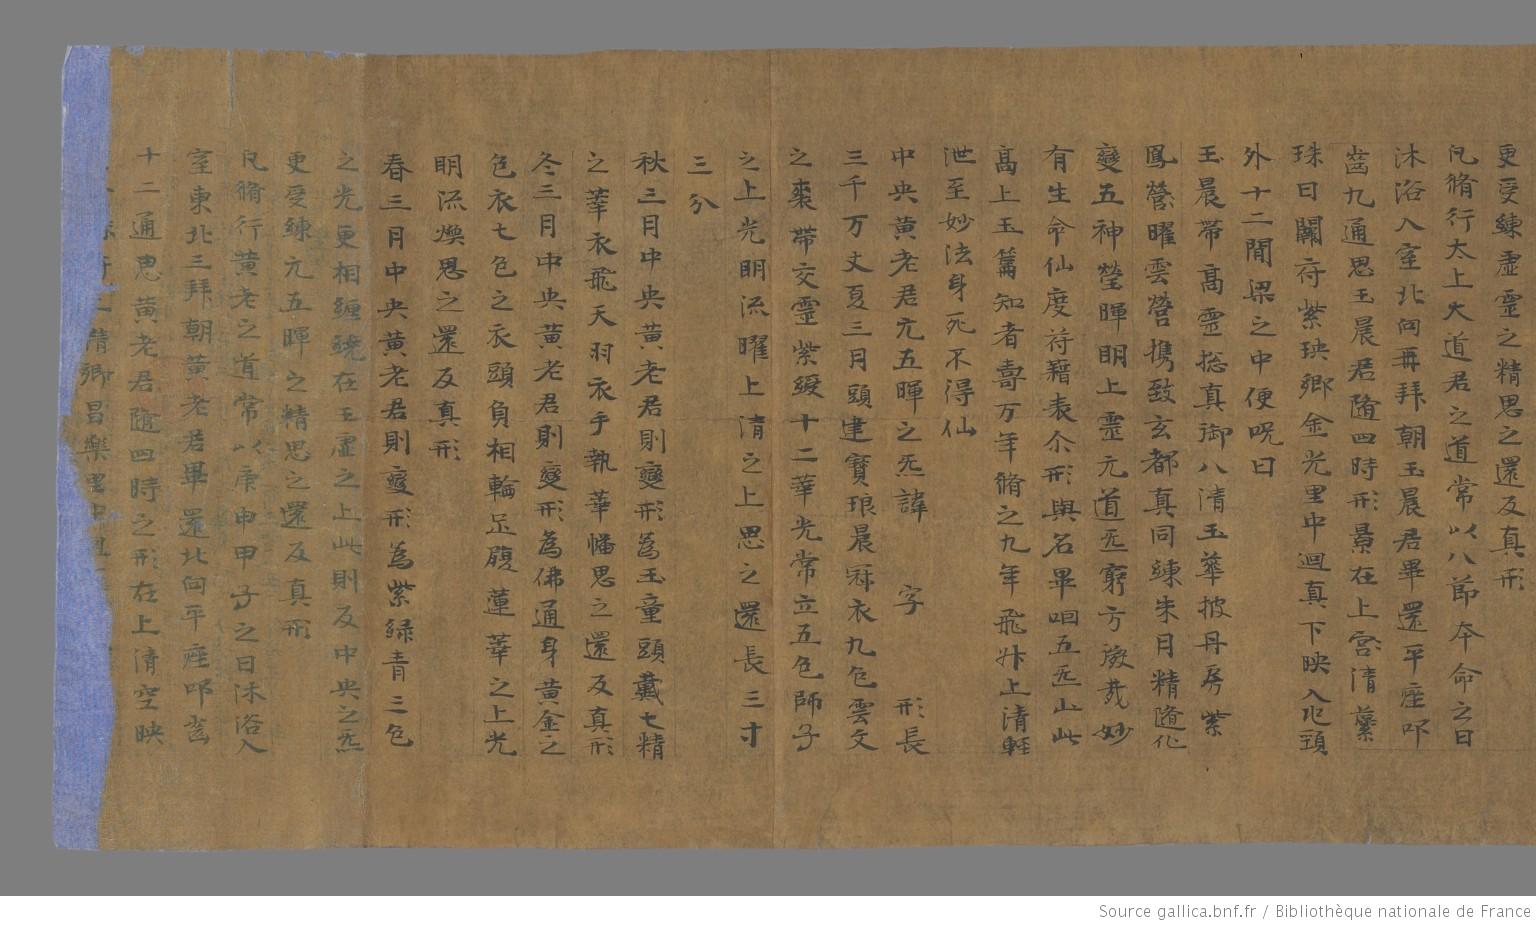 更受練虛靈之精思之還反真形
凡脩行太上大道君之道常以八節本命之日
沐浴入室北向再拜朝玉晨君畢還平座叩
齒九通思玉晨君隨四時形景在上宮清蘂
珠日闕府紫琰鄉金光里中迴真下映入兆頭
外十二間梁之中便呪曰
玉晨帶高靈惣真御八清玉華披丹房紫
鳳營曜雲營携致玄都真同竦朱月精隨化
變五神瑩暉明上靈元道炁窮方嶷㦲妙
有生命仙度苻籍表尒形與名畢咽五炁止此
高上玉篇知者壽万年脩之九年飛升上清輕
泄至妙法身死不得仙
中央黃老君元五暉之炁諱 字 形長
三千万丈夏三月頭建寳琅晨冠衣九色雲文
之裘帶交靈紫綬十二華光常立五色師子
之上光明流曜上清之上思之還長三寸
三分
秋三月中央黃老君則變形為玉童頭戴七精
之華衣飛天羽衣手執華幡思之還反真形
冬三月中央黃老君則變形為佛通身黃金之
色衣七色之衣頭負相輪足履蓮華之上光
明流煥思之還反真形
春三月中央黃老君則變形為紫綠青三色
之光更相纏繞在玉虛之上此則反中央之炁
更受練元五暉之精思之還反真形
凡脩行黃老之道常以庚申甲子之日沐浴入
室東北三拜朝黃老君畢還北向平座叩齒
十二通思黃老君隨四時之形在上清空映
清卿昌樂里中
Source gallica.bnf.fr / Bibliothèque nationale de France